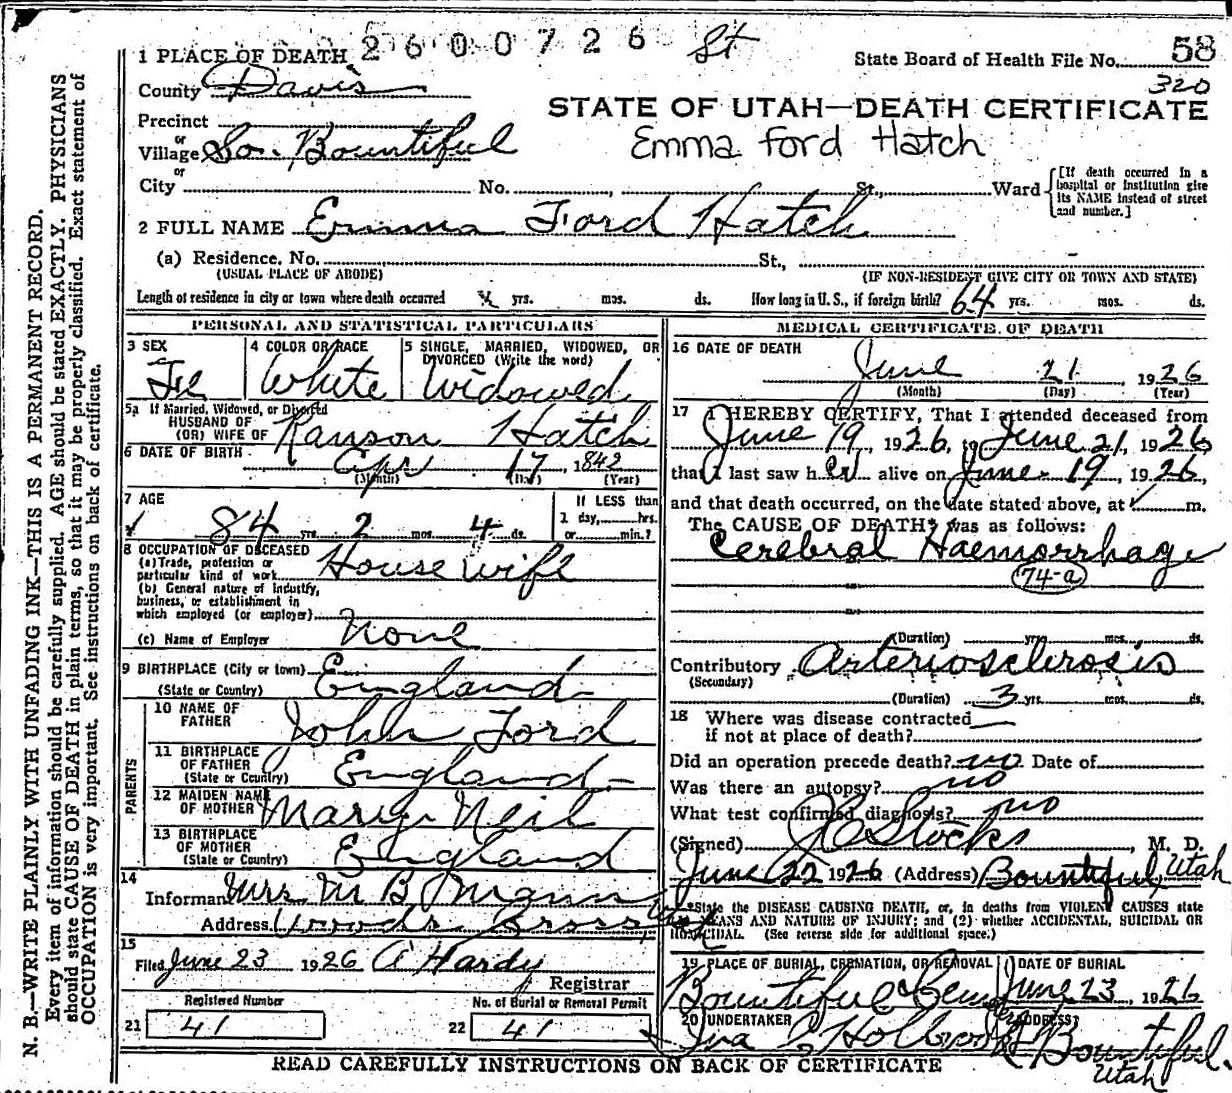 N. B.—WRITE PLAINLY WITH UNFADING INK—THIS IS A PERMANENT RECORD.
Every item of information should be carefully supplied. AGE should be stated EXACTLY. PHYSICIANS
should state CAUSE OF DEATH in plain terms, so that it may be properly classified. Exact statement of
OCCUPATION is very important. See instructions on back of certificate.
2600726 St
State Board of Health File No. 58
320
1 PLACE OF DEATH
County Davis
STATE OF UTAH—DEATH CERTIFICATE
Emma Ford Hatch
Precinct
or
Village So. Bountiful
or
City No. St., Ward
[If death occurred in a
hospital or institution give
its NAME instead of street
and number.]
2 FULL NAME Emma Ford Hatch
(a) Residence. No. St.,
(USUAL PLACE OF ABODE) (IF NON-RESIDENT GIVE CITY OR TOWN AND STATE)
Length of residence in city or town where death occurred yrs. mos. ds. How long in U. S., if foreign birth? 64 yrs. mos. ds.
PERSONAL AND STATISTICAL PARTICULARS
3 SEX
Fe
4 COLOR OR RACE
White
5 SINGLE, MARRIED, WIDOWED, OR
DIVORCED (Write the word)
Widowed
5a If Married, Widowed, or Divorced
HUSBAND OF
(OR) WIFE OF Ranson Hatch
6 DATE OF BIRTH Apr 17 1842
(Month) (Day) (Year)
7 AGE
84 yrs. 2 mos. 4 ds.
If LESS than
1 day, hrs.
or min.?
8 OCCUPATION OF DECEASED
(a) Trade, profession or
particular kind of work House wife
(b) General nature of industry,
business, or establishment in
which employed (or employer)
(c) Name of Employer None
9 BIRTHPLACE (City or town)
(State or Country) England
PARENTS
10 NAME OF
FATHER John Ford
11 BIRTHPLACE
OF FATHER
(State or Country) England
12 MAIDEN NAME
OF MOTHER Mary Neil
13 BIRTHPLACE
OF MOTHER
(State or Country) England
14
Informant Mrs M B Mann
Address Woods Cross, Utah
15
Filed June 23 1926 A Hardy
Registrar
Registered Number
21 41
No. of Burial or Removal Permit
22 41
MEDICAL CERTIFICATE OF DEATH
16 DATE OF DEATH
June 21, 1926
(Month) (Day) (Year)
17 I HEREBY CERTIFY, That I attended deceased from
June 19, 1926, to June 21, 1926
that I last saw her alive on June 19, 1926,
and that death occurred, on the date stated above, at m.
The CAUSE OF DEATH* was as follows:
Cerebral Haemorrhage
74-a
(Duration) yrs. mos. ds.
Contributory Arteriosclerosis
(Secondary)
(Duration) 3 yrs. mos. ds.
18 Where was disease contracted
if not at place of death?
Did an operation precede death? no Date of
Was there an autopsy? no
What test confirmed diagnosis? no
(Signed) Stocks, M. D.
June 22 1926 (Address) Bountiful Utah
*State the DISEASE CAUSING DEATH, or, in deaths from VIOLENT CAUSES state
(1) MEANS AND NATURE OF INJURY; and (2) whether ACCIDENTAL, SUICIDAL OR
HOMICIDAL. (See reverse side for additional space.)
19 PLACE OF BURIAL, CREMATION, OR REMOVAL
Bountiful Cem
DATE OF BURIAL
June 23, 1926
20 UNDERTAKER
Holbrook
ADDRESS
Bountiful
Utah
READ CAREFULLY INSTRUCTIONS ON BACK OF CERTIFICATE